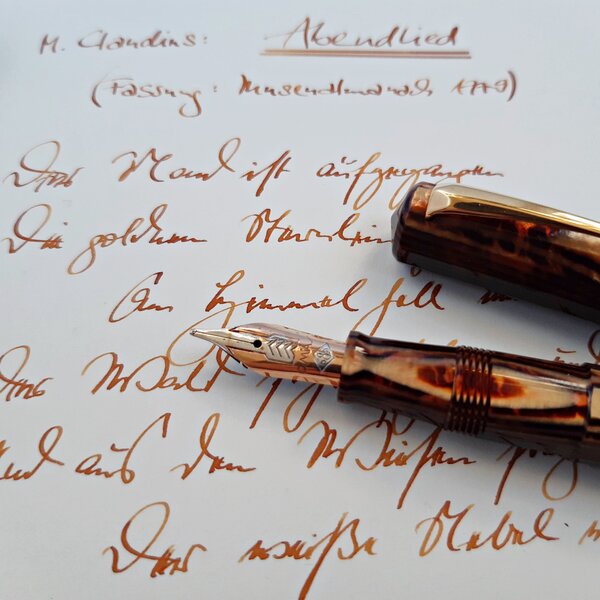 M. Claudius: Abendlied
(Fassung: Musenalmanach 1779)
Der Mond ist aufgegangen
Die goldnen Sternlein
Am Himmel hell
Der Wald
und aus den Wiesen
Der weiße Nebel